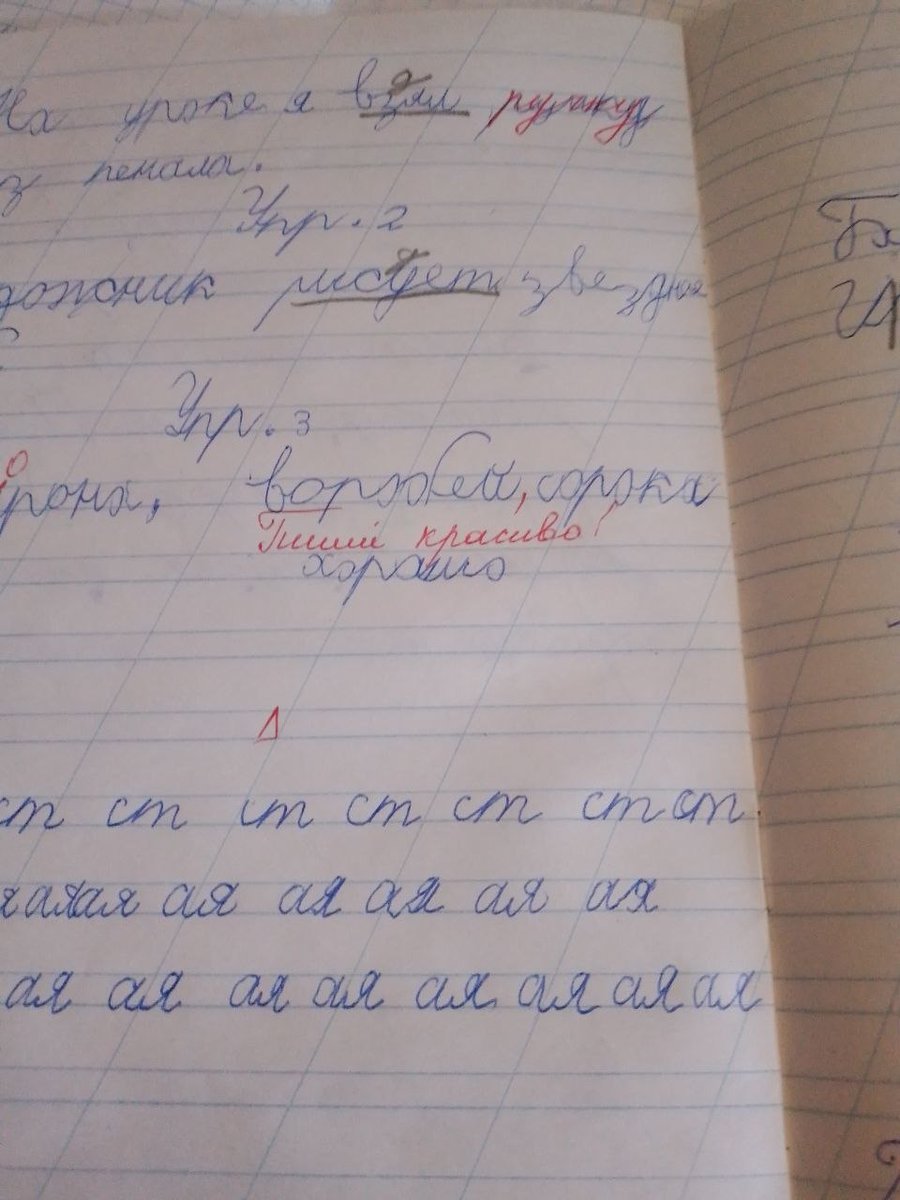 На уроке я взял
з пенала.
Упр. 2
дожник рисует звездная
Упр. 3
рона, воробей, сорока
Пиши красиво!
хорошо
ст ст ст ст ст ст ст
аяая ая ая ая ая ая
ая ая ая ая ая ая ая ая